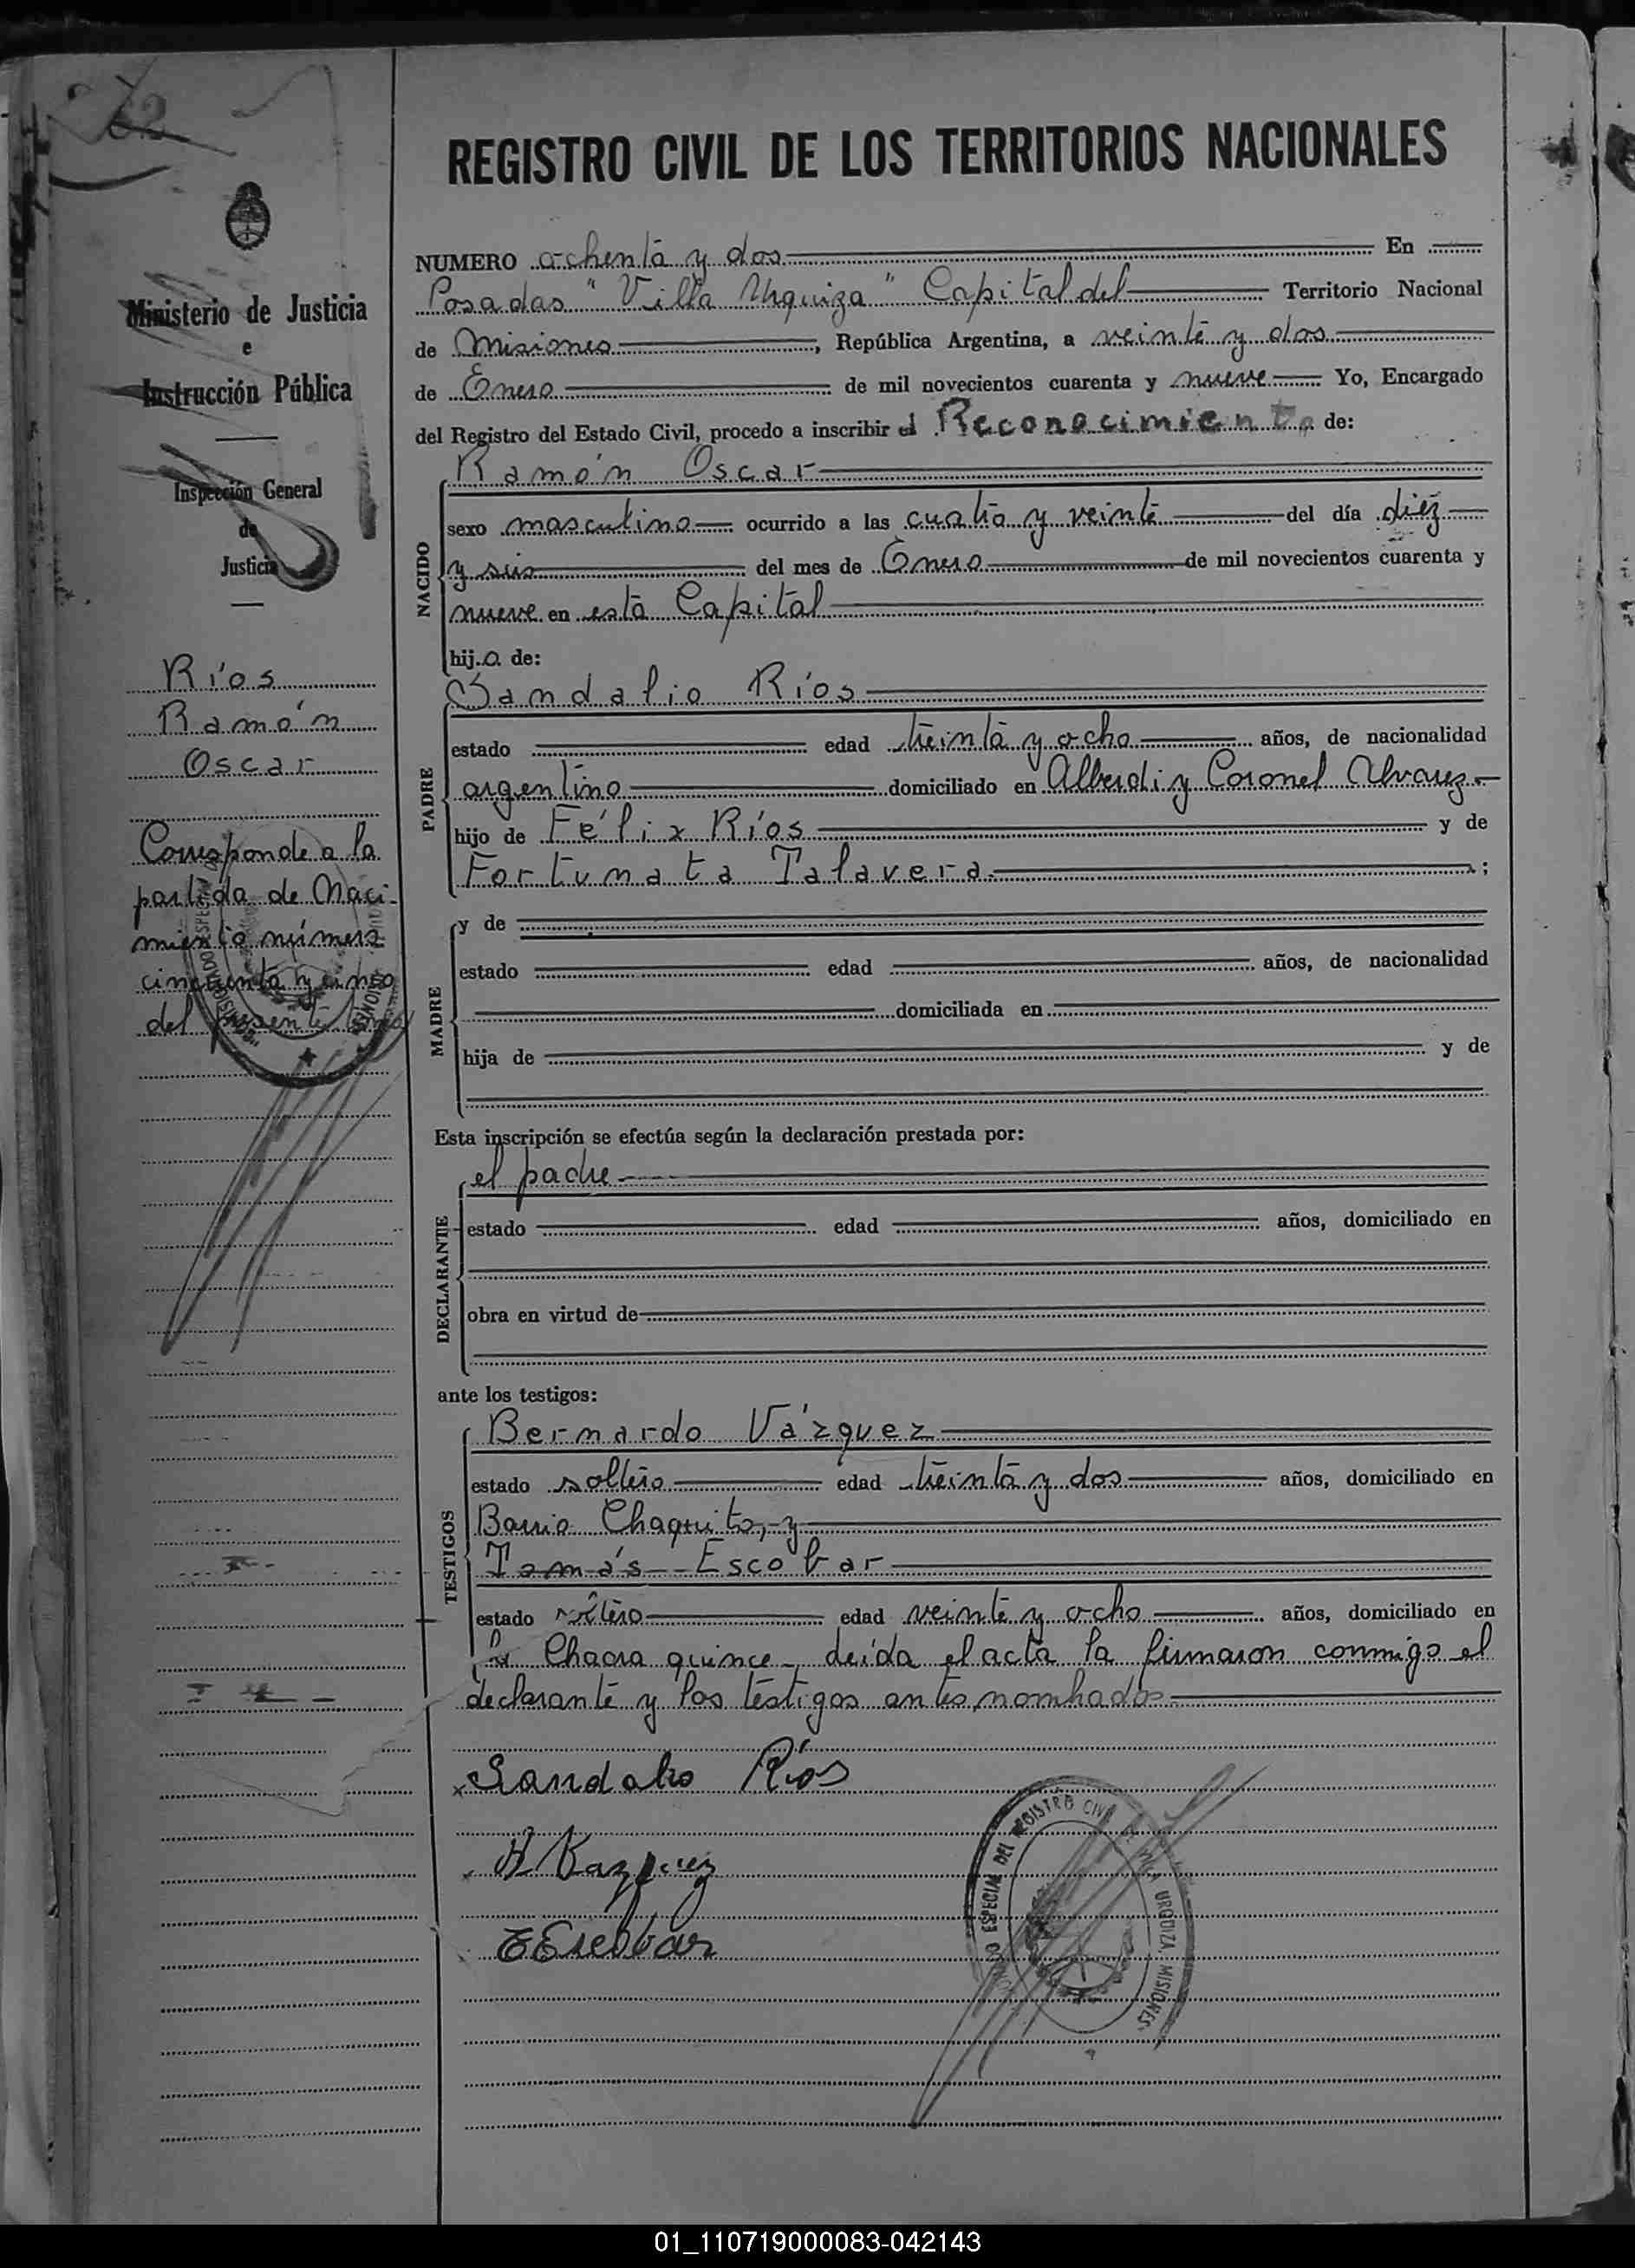 82
REGISTRO CIVIL DE LOS TERRITORIOS NACIONALES
Ministerio de Justicia
e
Instrucción Pública
Inspección General
de
Justicia
Ríos
Ramón
Oscar
Corresponde a la
partida de Naci-
miento número
cincuenta y cinco
del presente tomo
NUMERO ochenta y dos En
Posadas "Villa Urquiza" Capital del Territorio Nacional
de Misiones, República Argentina, a veinte y dos
de Enero de mil novecientos cuarenta y nueve Yo, Encargado
del Registro del Estado Civil, procedo a inscribir el Reconocimiento de:
NACIDO
Ramón Oscar
sexo masculino ocurrido a las cuatro y veinte del día diéz
y seis del mes de Enero de mil novecientos cuarenta y
nueve en esta Capital
hijo de:
PADRE
Sandalio Ríos
estado edad treinta y ocho años, de nacionalidad
argentino domiciliado en Alberdi y Coronel Alvarez
hijo de Félix Ríos y de
Fortunata Talavera;
MADRE
y de
estado edad años, de nacionalidad
domiciliada en
hija de y de
Esta inscripción se efectúa según la declaración prestada por:
DECLARANTE
el padre
estado edad años, domiciliado en
obra en virtud de
ante los testigos:
TESTIGOS
Bernardo Vázquez
estado soltero edad treinta y dos años, domiciliado en
Barrio Chaquito, y
Tomás Escobar
estado soltero edad veinte y ocho años, domiciliado en
la Chacra quince leída el acta la firmaron conmigo el
declarante y los testigos antes nombrados
Sandalio Ríos
B Vazquez
T Escobar
ESPECIAL DEL REGISTRO CIVIL
URQUIZA, MISIONES
01_110719000083-042143